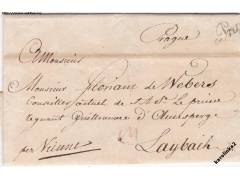 Prague
Monsieur
Monsieur Floriani de Weber
Conseiller actuel de S. A. S. Le prince
regnant Guillaume d'Auersperg
par Vienne
Laybach